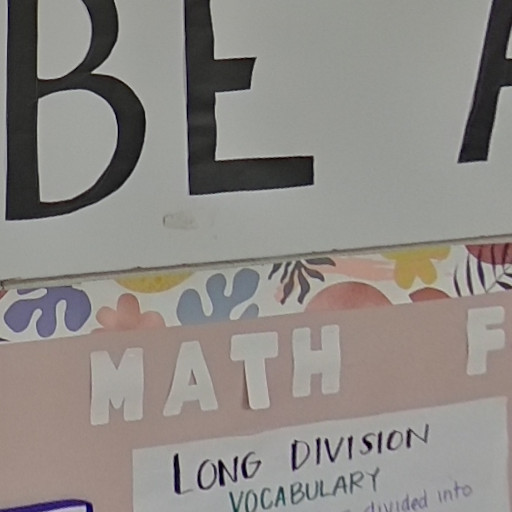 BE A
MATH F
LONG DIVISION
VOCABULARY
divided into